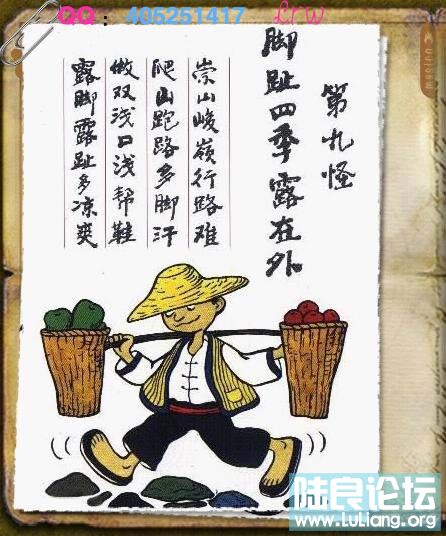 QQ：405251417
Lrw
第九怪
脚趾四季露在外
崇山峻嶺行路难
爬山跑路多脚汗
做双浅口浅帮鞋
露脚露趾多凉爽
陆良论坛
www.LuLiang.org